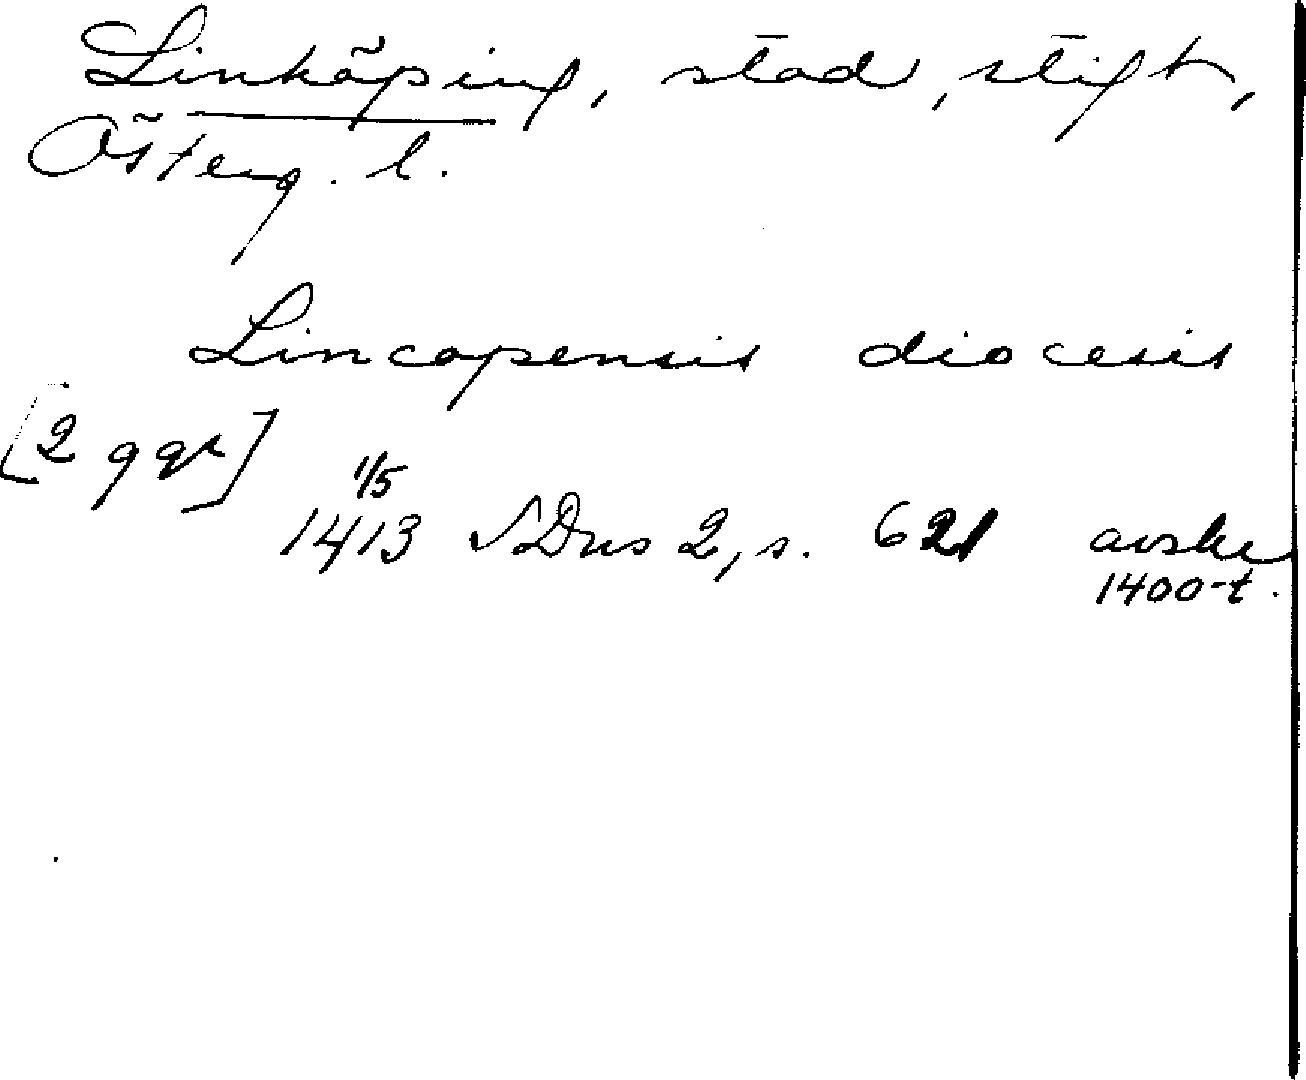 Linköping, stad, stift,
Österg. l.
Lincopensis diocesis
[2 ggr]
1/5
1413 SDns 2, s. 621 avskr
1400-t.